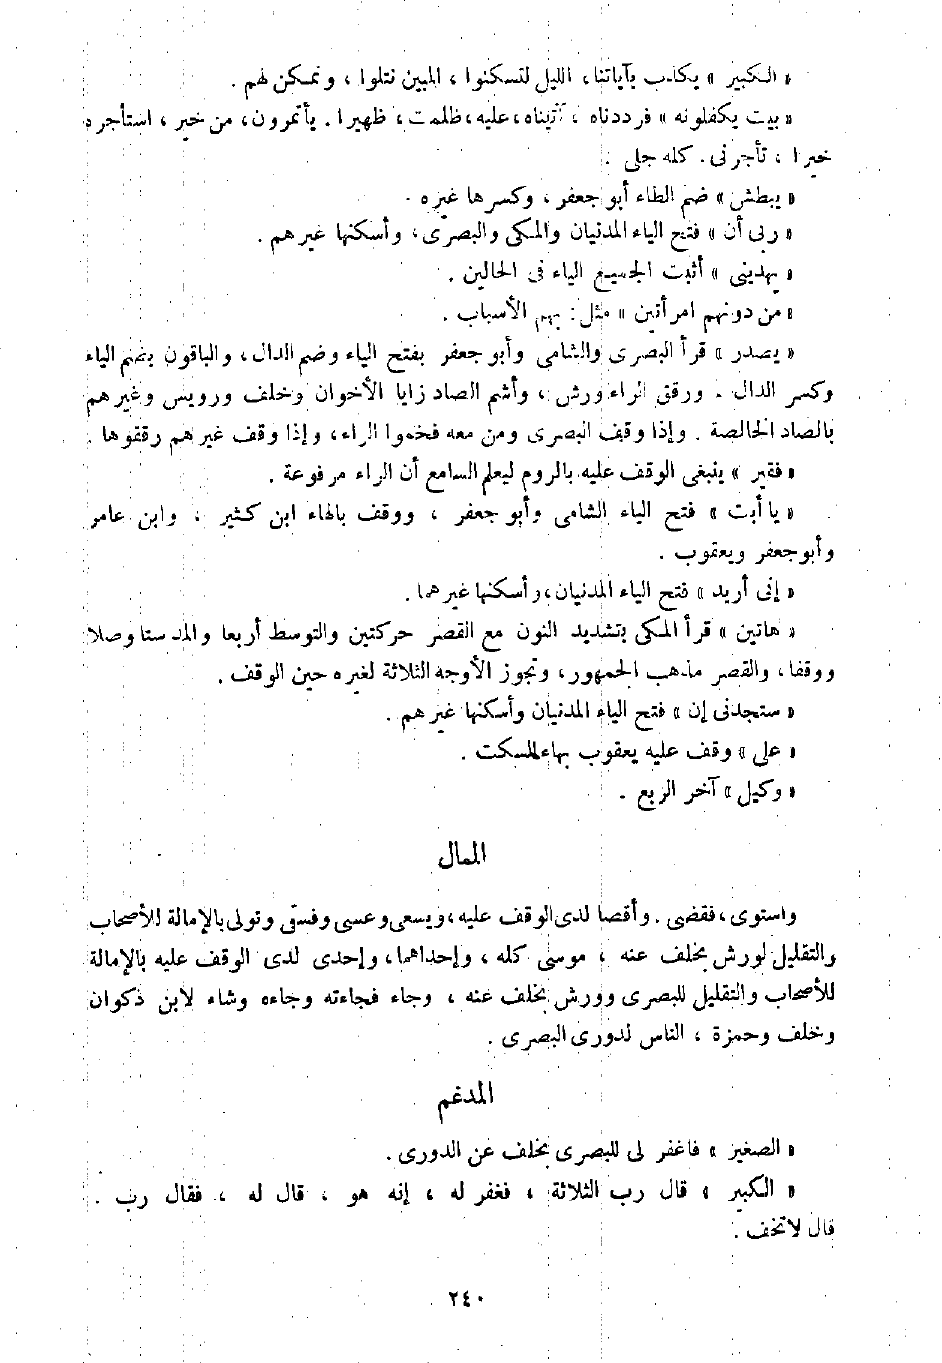 « الكبير » يكذب بآياتنا، الليل لتسكنوا ، المبين نتلوا ، ونمكن لهم .
« بيت يكفلونه » فرددناه ، آتيناه، عليه، ظلمت، ظهيرا . يأتمرون، من خير، استأجره
خيرا ، تأجرنى . كله جلى .
« يبطش » ضم الطاء أبو جعفر ، وكسرها غيره .
« ربى أن » فتح الياء المدنيان والمكى والبصرى، وأسكنها غيرهم .
« يهدينى » أثبت الجميع الياء فى الحالين .
« من دونهم امرأتين » مثل: بهم الأسباب .
« يصدر » قرأ البصرى والشامى وأبو جعفر بفتح الياء وضم الدال، والباقون بضم الياء
وكسر الدال . ورقق الراء ورش ، وأشم الصاد زايا الأخوان وخلف ورويس وغيرهم
بالصاد الخالصة . وإذا وقف البصرى ومن معه فخموا الراء، وإذا وقف غيرهم رققوها .
« فقير » ينبغى الوقف عليه بالروم ليعلم السامع أن الراء مرفوعة .
« يا أبت » فتح الياء الشامى وأبو جعفر ، ووقف بالهاء ابن كثير ، وابن عامر
وأبو جعفر ويعقوب .
« إنى أريد » فتح الياء المدنيان، وأسكنها غيرهما .
« هاتين » قرأ المكى بتشديد النون مع القصر حركتين والتوسط أربعا والمد ستا وصلا
ووقفا، والقصر مذهب الجمهور، وتجوز الأوجه الثلاثة لغيره حين الوقف .
« ستجدنى إن » فتح الياء المدنيان وأسكنها غيرهم .
« على » وقف عليه يعقوب بهاء السكت .
« وكيل » آخر الربع .
الممال
واستوى ، فقضى . وأقصا لدى الوقف عليه، ويسعى وعسى وفسقى وتولى بالإمالة للأصحاب
والتقليل لورش بخلف عنه ، موسى كله ، وإحداهما، وإحدى لدى الوقف عليه بالإمالة
للأصحاب والتقليل للبصرى وورش بخلف عنه ، وجاء فجاءته وجاءه وشاء لابن ذكوان
وخلف وحمزة ، الناس لدورى البصرى .
المدغم
« الصغير » فاغفر لى للبصرى بخلف عن الدورى .
« الكبير » قال رب الثلاثة ، فغفر له ، إنه هو ، قال له ، فقال رب .
قال لا تخف .
٢٤٠